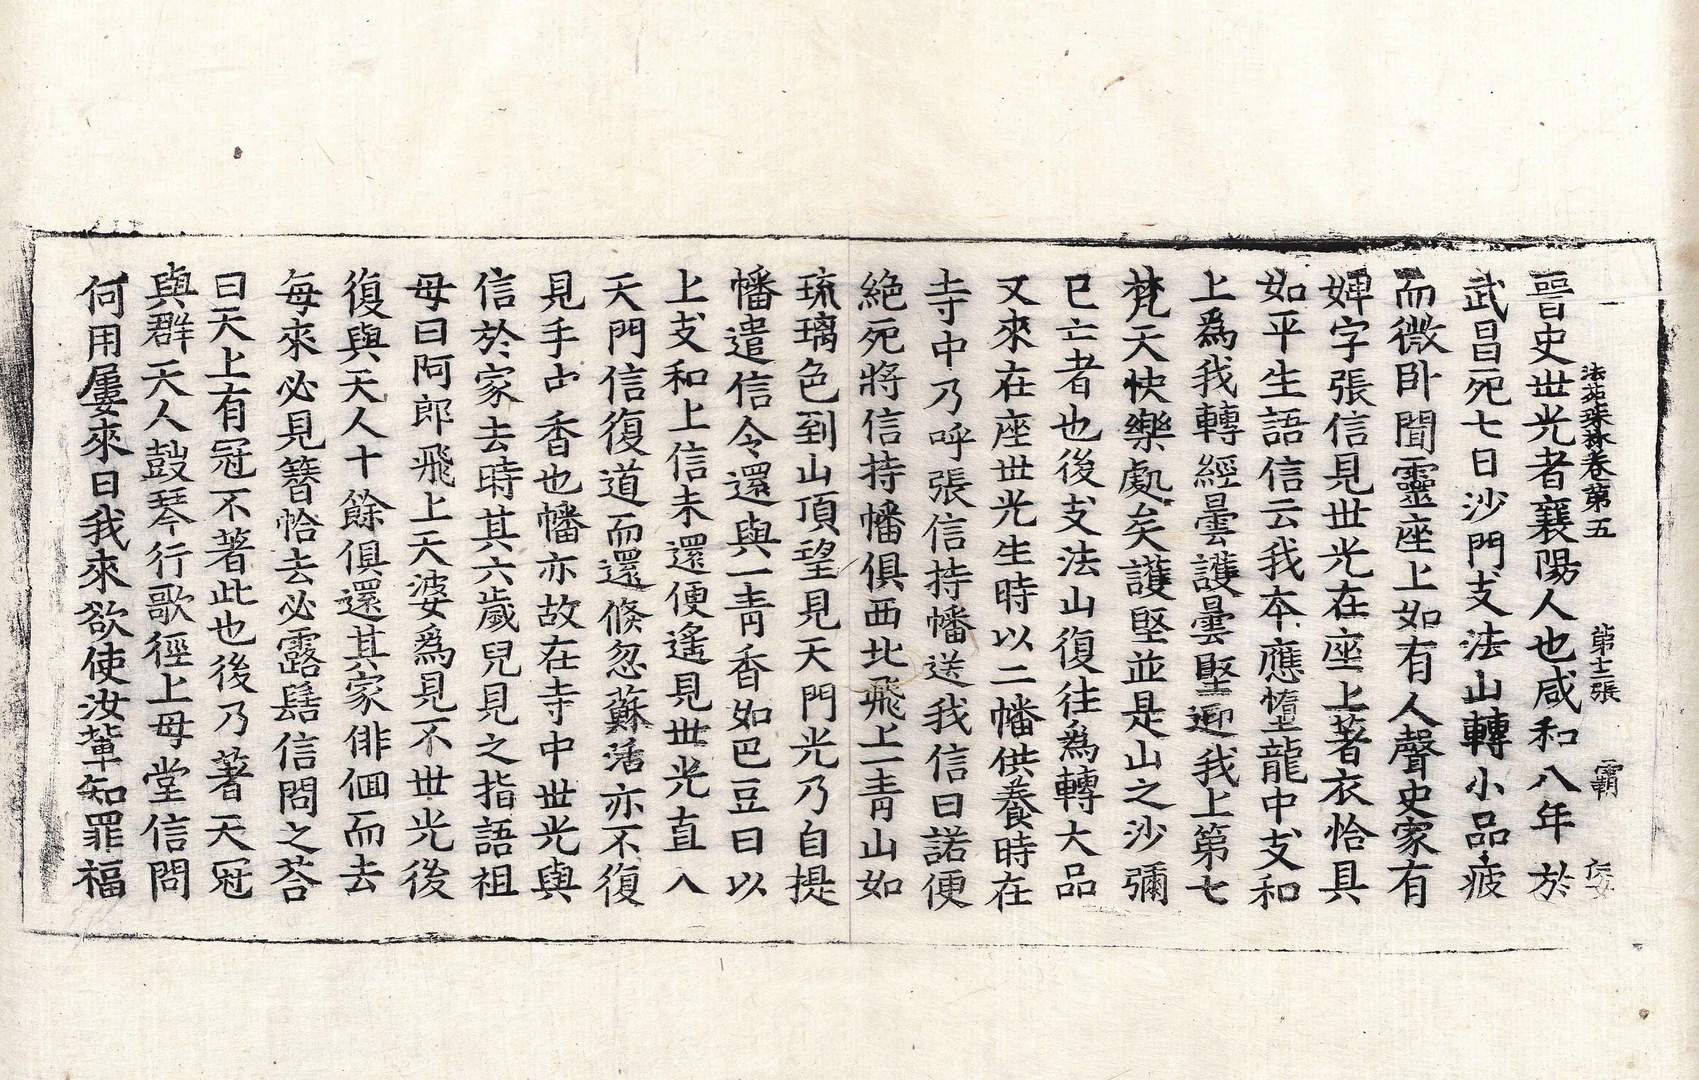 法苑珠林卷第五 第十二張 覇
晉史世光者襄陽人也咸和八年於
武昌死七日沙門支法山轉小品疲
而微卧聞靈座上如有人聲史家有
婢字張信見世光在座上著衣恰具
如平生語信云我本應墮龍中支和
上爲我轉經曇護曇堅迎我上第七
梵天快樂處矣護堅並是山之沙彌
已亡者也後支法山復往爲轉大品
又來在座世光生時以二幡供養時在
寺中乃呼張信持幡送我信曰諾便
絶死將信持幡俱西北飛上一青山如
琉璃色到山頂望見天門光乃自提
幡遣信令還與一青香如巴豆曰以
上支和上信未還便遙見世光直入
天門信復道而還倏忽蘇活亦不復
見手中香也幡亦故在寺中世光與
信於家去時其六歲兒見之指語祖
母曰阿郎飛上天婆爲見不世光後
復與天人十餘俱還其家徘徊而去
每來必見簪恰去必露髻信問之荅
曰天上有冠不著此也後乃著天冠
與群天人鼓琴行歌徑上母堂信問
何用屢來曰我來欲使汝輩知罪福